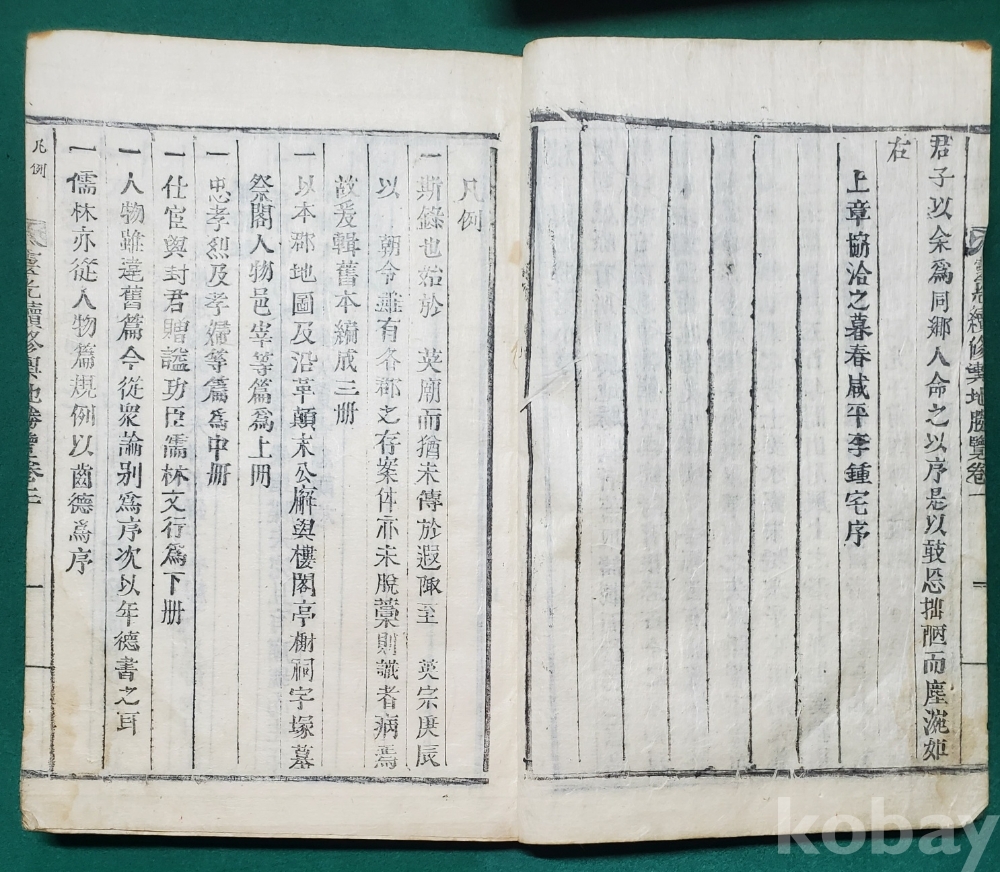 續修輿地勝覽卷一
君子以余爲同鄉人命之以序是以敢忘拙陋而塵涴如
右
上章協洽之暮春咸平李鍾宅序
凡例
一 斯錄也始於 英廟而猶未傳於遐陬至 英宗庚辰
以 朝令雖有各郡之存案体亦未脫藁則識者病焉
故爰輯舊本編成三册
一 以本郡地圖及沿革顛末公廨與樓閣亭榭祠宇塚墓
祭閣人物邑宰等篇爲上册
一 忠孝烈及孝婦等篇爲中册
一 仕宦與封君贈諡功臣儒林文行爲下册
一 人物雖違舊篇今從衆論别爲序次以年德書之耳
一 儒林亦從人物篇規例以齒德爲序
凡例
續修輿地勝覽卷
一
kobay